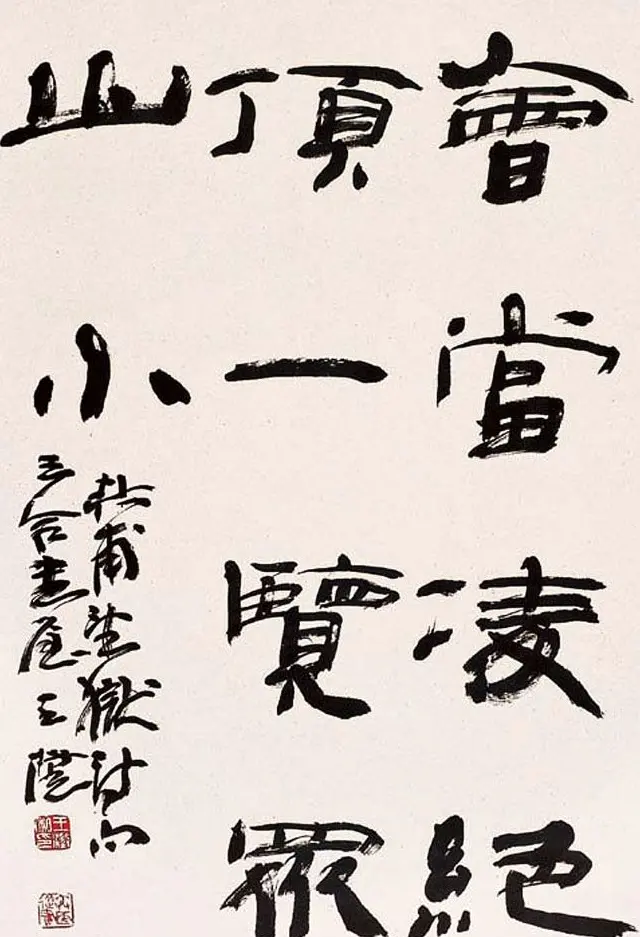 會當凌絕
頂一覽眾
山小
杜甫望嶽詩句
三合書屋王